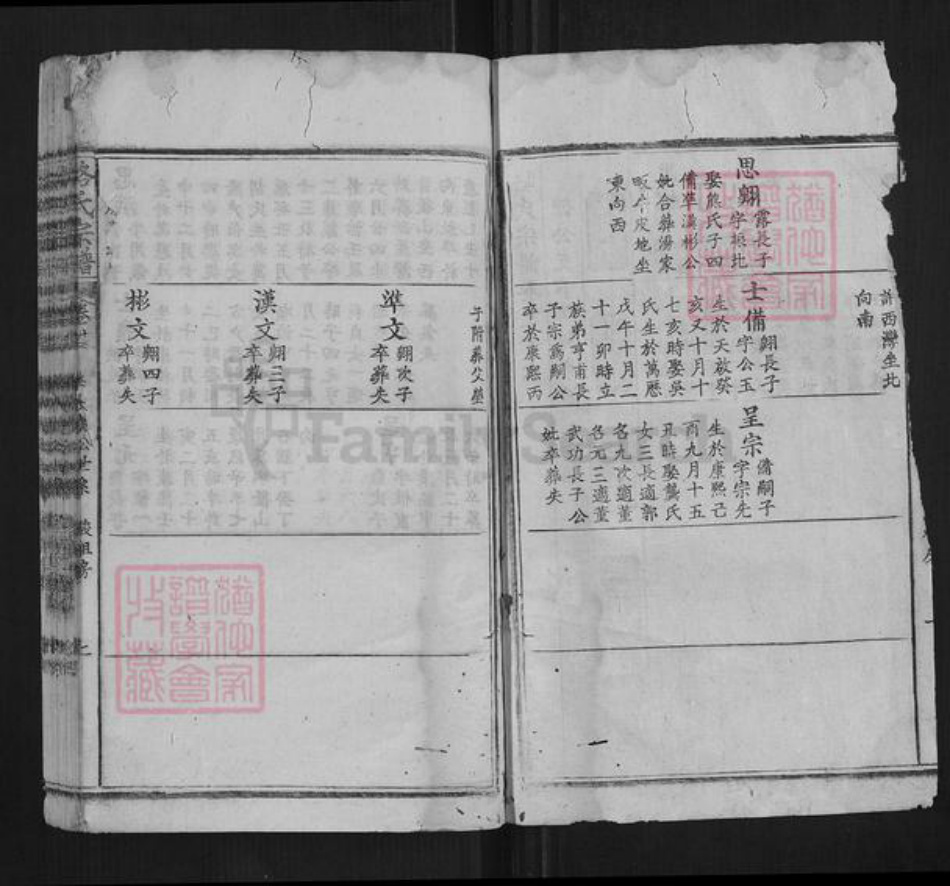 許西灣坐北
向南
思翺
露長子
字振北
娶熊氏子四
備準漢彬公
妣合葬湯家
坂牛皮地坐
東向西
士備
翺長子
字公玉
生於天啟癸
亥又十月十
七亥時娶吳
氏生於萬歷
戊午十月二
十一卯時立
族弟亨甫長
子宗為嗣公
卒於康熙丙
子附葬父塋
呈宗
備嗣子
字宗先
生於康熙己
酉九月十五
丑時娶龔氏
女三長適郭
名九次適董
名元三適董
武功長子公
妣卒葬失
準文
翺次子
卒葬失
漢文
翺三子
卒葬失
彬文
翺四子
卒葬失
氏宗譜
公世系
祖房
七
猶他家
譜學會
收藏
FamilySearch